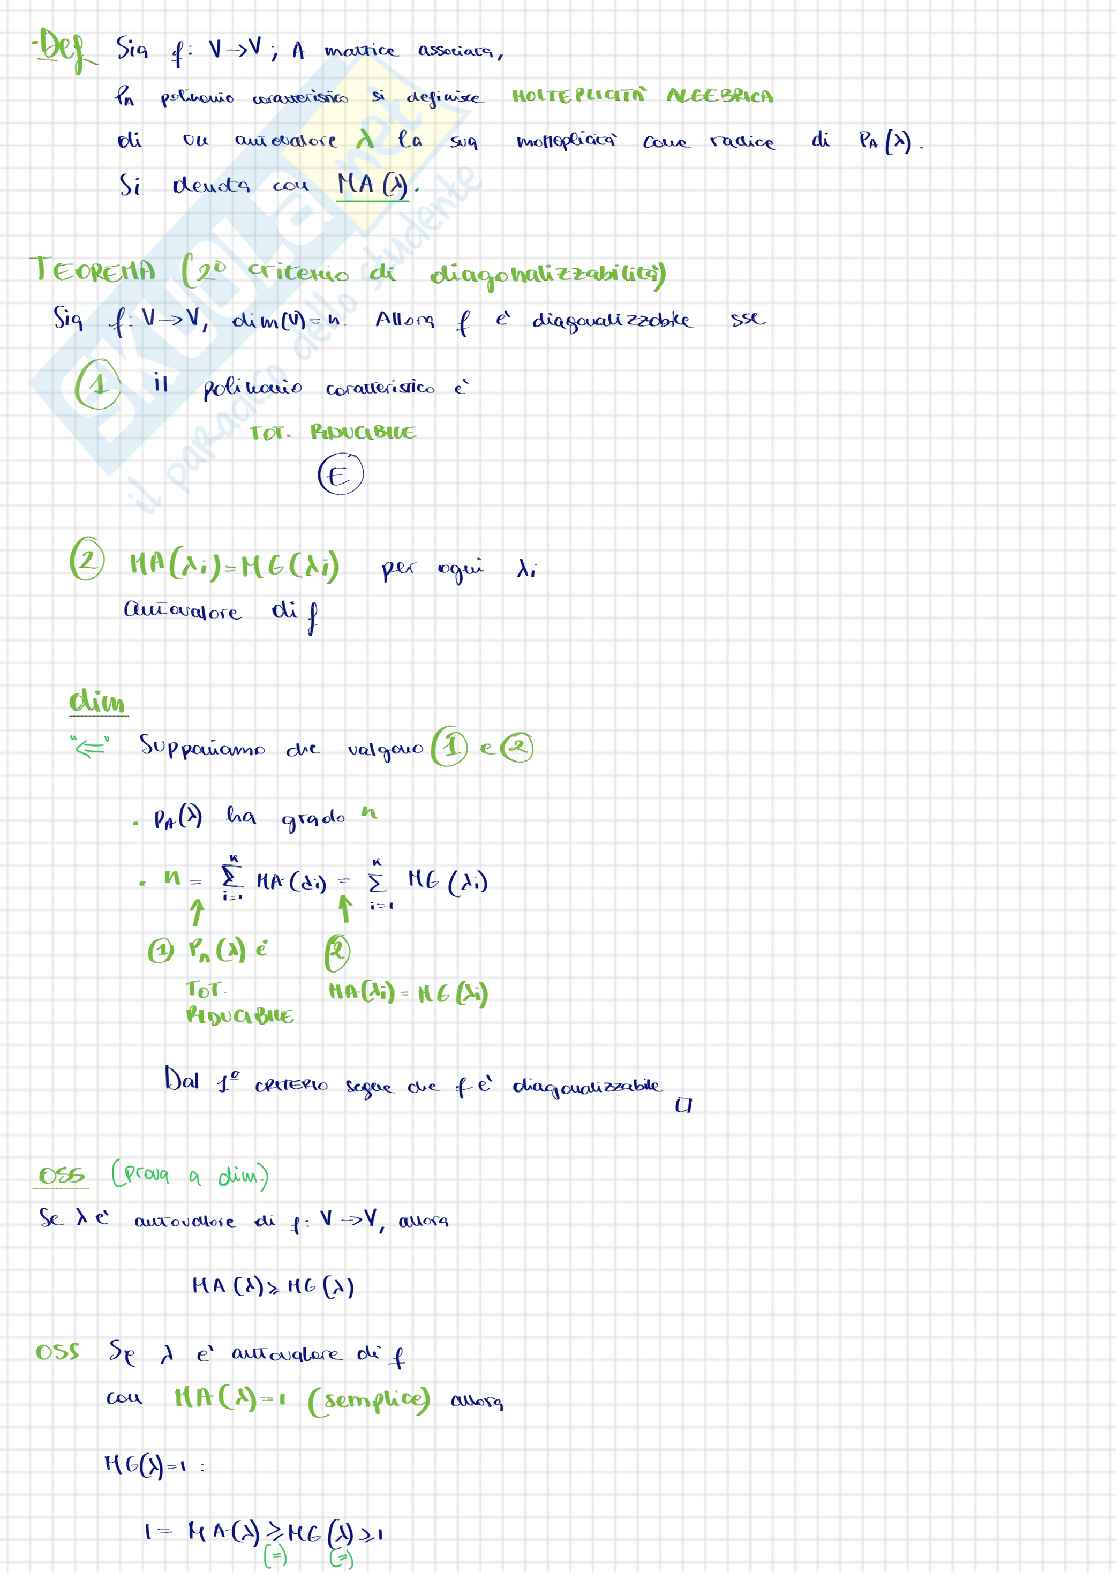 -Def Sia f: V→V; A matrice associata,
P_A polinomio caratteristico si definisce MOLTEPLICITÀ ALGEBRICA
di un autovalore λ la sua molteplicità come radice di P_A(λ).
Si denota con MA(λ).
TEOREMA (2° criterio di diagonalizzabilità)
Sia f: V→V, dim(V)=n. Allora f è diagonalizzabile sse
① il polinomio caratteristico è
TOT. RIDUCIBILE
Ⓔ
② MA(λi)=MG(λi) per ogni λi
autovalore di f
dim
"⇐" Supponiamo che valgono ① e ②
. P_A(λ) ha grado n
. n = Σ_{i=1}^{k} MA(λi) = Σ_{i=1}^{k} MG(λi)
↑ ↑
① P_A(λ) è ②
TOT. MA(λi)=MG(λi)
RIDUCIBILE
Dal 1° CRITERIO segue che f è diagonalizzabile □
OSS (prova a dim.)
Se λ è autovalore di f: V→V, allora
MA(λ)⩾MG(λ)
OSS Se λ è autovalore di f
con MA(λ)=1 (semplice) allora
MG(λ)=1 :
1 = MA(λ)⩾MG(λ)⩾1
(=) (=)
SKUOLA.net
il paradiso dello studente